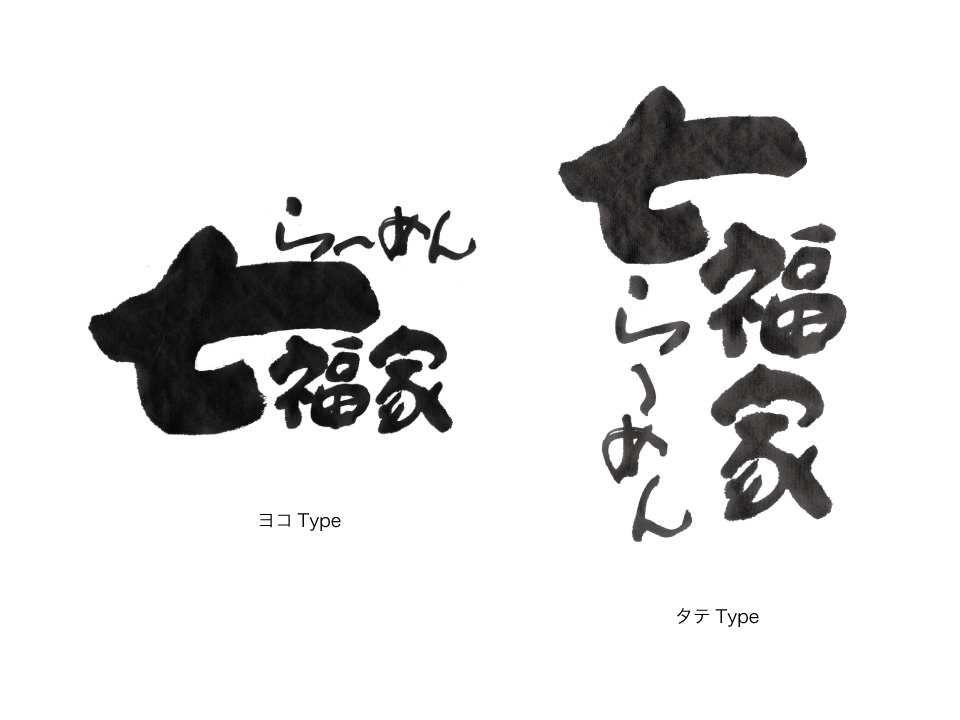 らーめん
七福家
ヨコ Type
七福家
らーめん
タテ Type